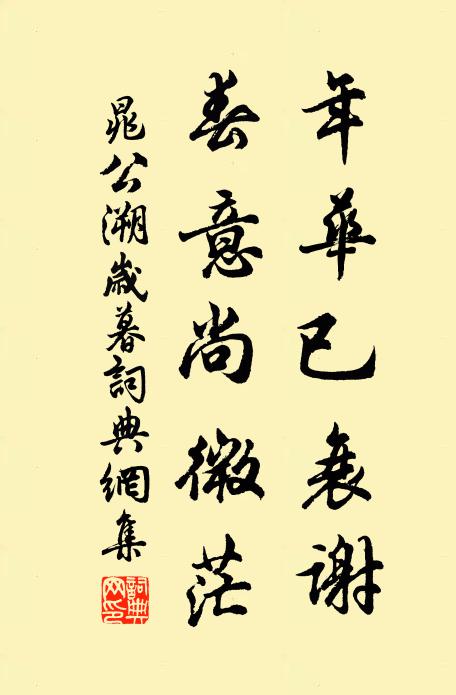 年華已衰謝
春意尚微茫
晁公溯歲暮詞典網集
詞典網印